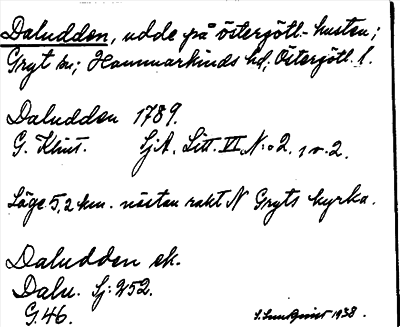 Daludden, udde på östergötl. kusten;
Gryt sn; Hammarkinds hd; Östergötl. l.
Daludden 1789.
G. Klint. Sj.A. Litt. VI N:o 2, v. 2.
Läge 5,2 km. nästan rakt N Gryts kyrka.
Daludden ek.
Dalu. Sj: 252.
G.46. S. Lundqvist 1938.